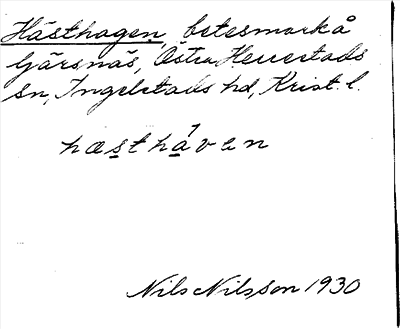 Hästhagen, betesmark å
Gärsnäs, Östra Herrestads
sn, Ingelstads hd, Krist. l.
hæsthåven
Nils Nilsson 1930